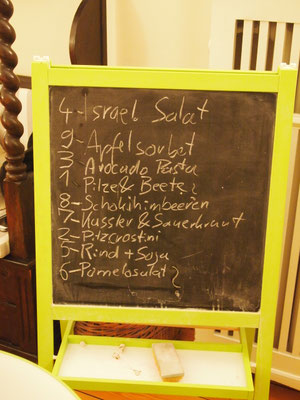 4-Israel Salat
9-Apfelsorbet
3 Avocado Pasta
1 Pilze & Beete
8-Schokihimbeeren
7-Kassler & Sauerkraut
2-Pilzcrostini
5-Rind + Soja
6-Pomelosalat